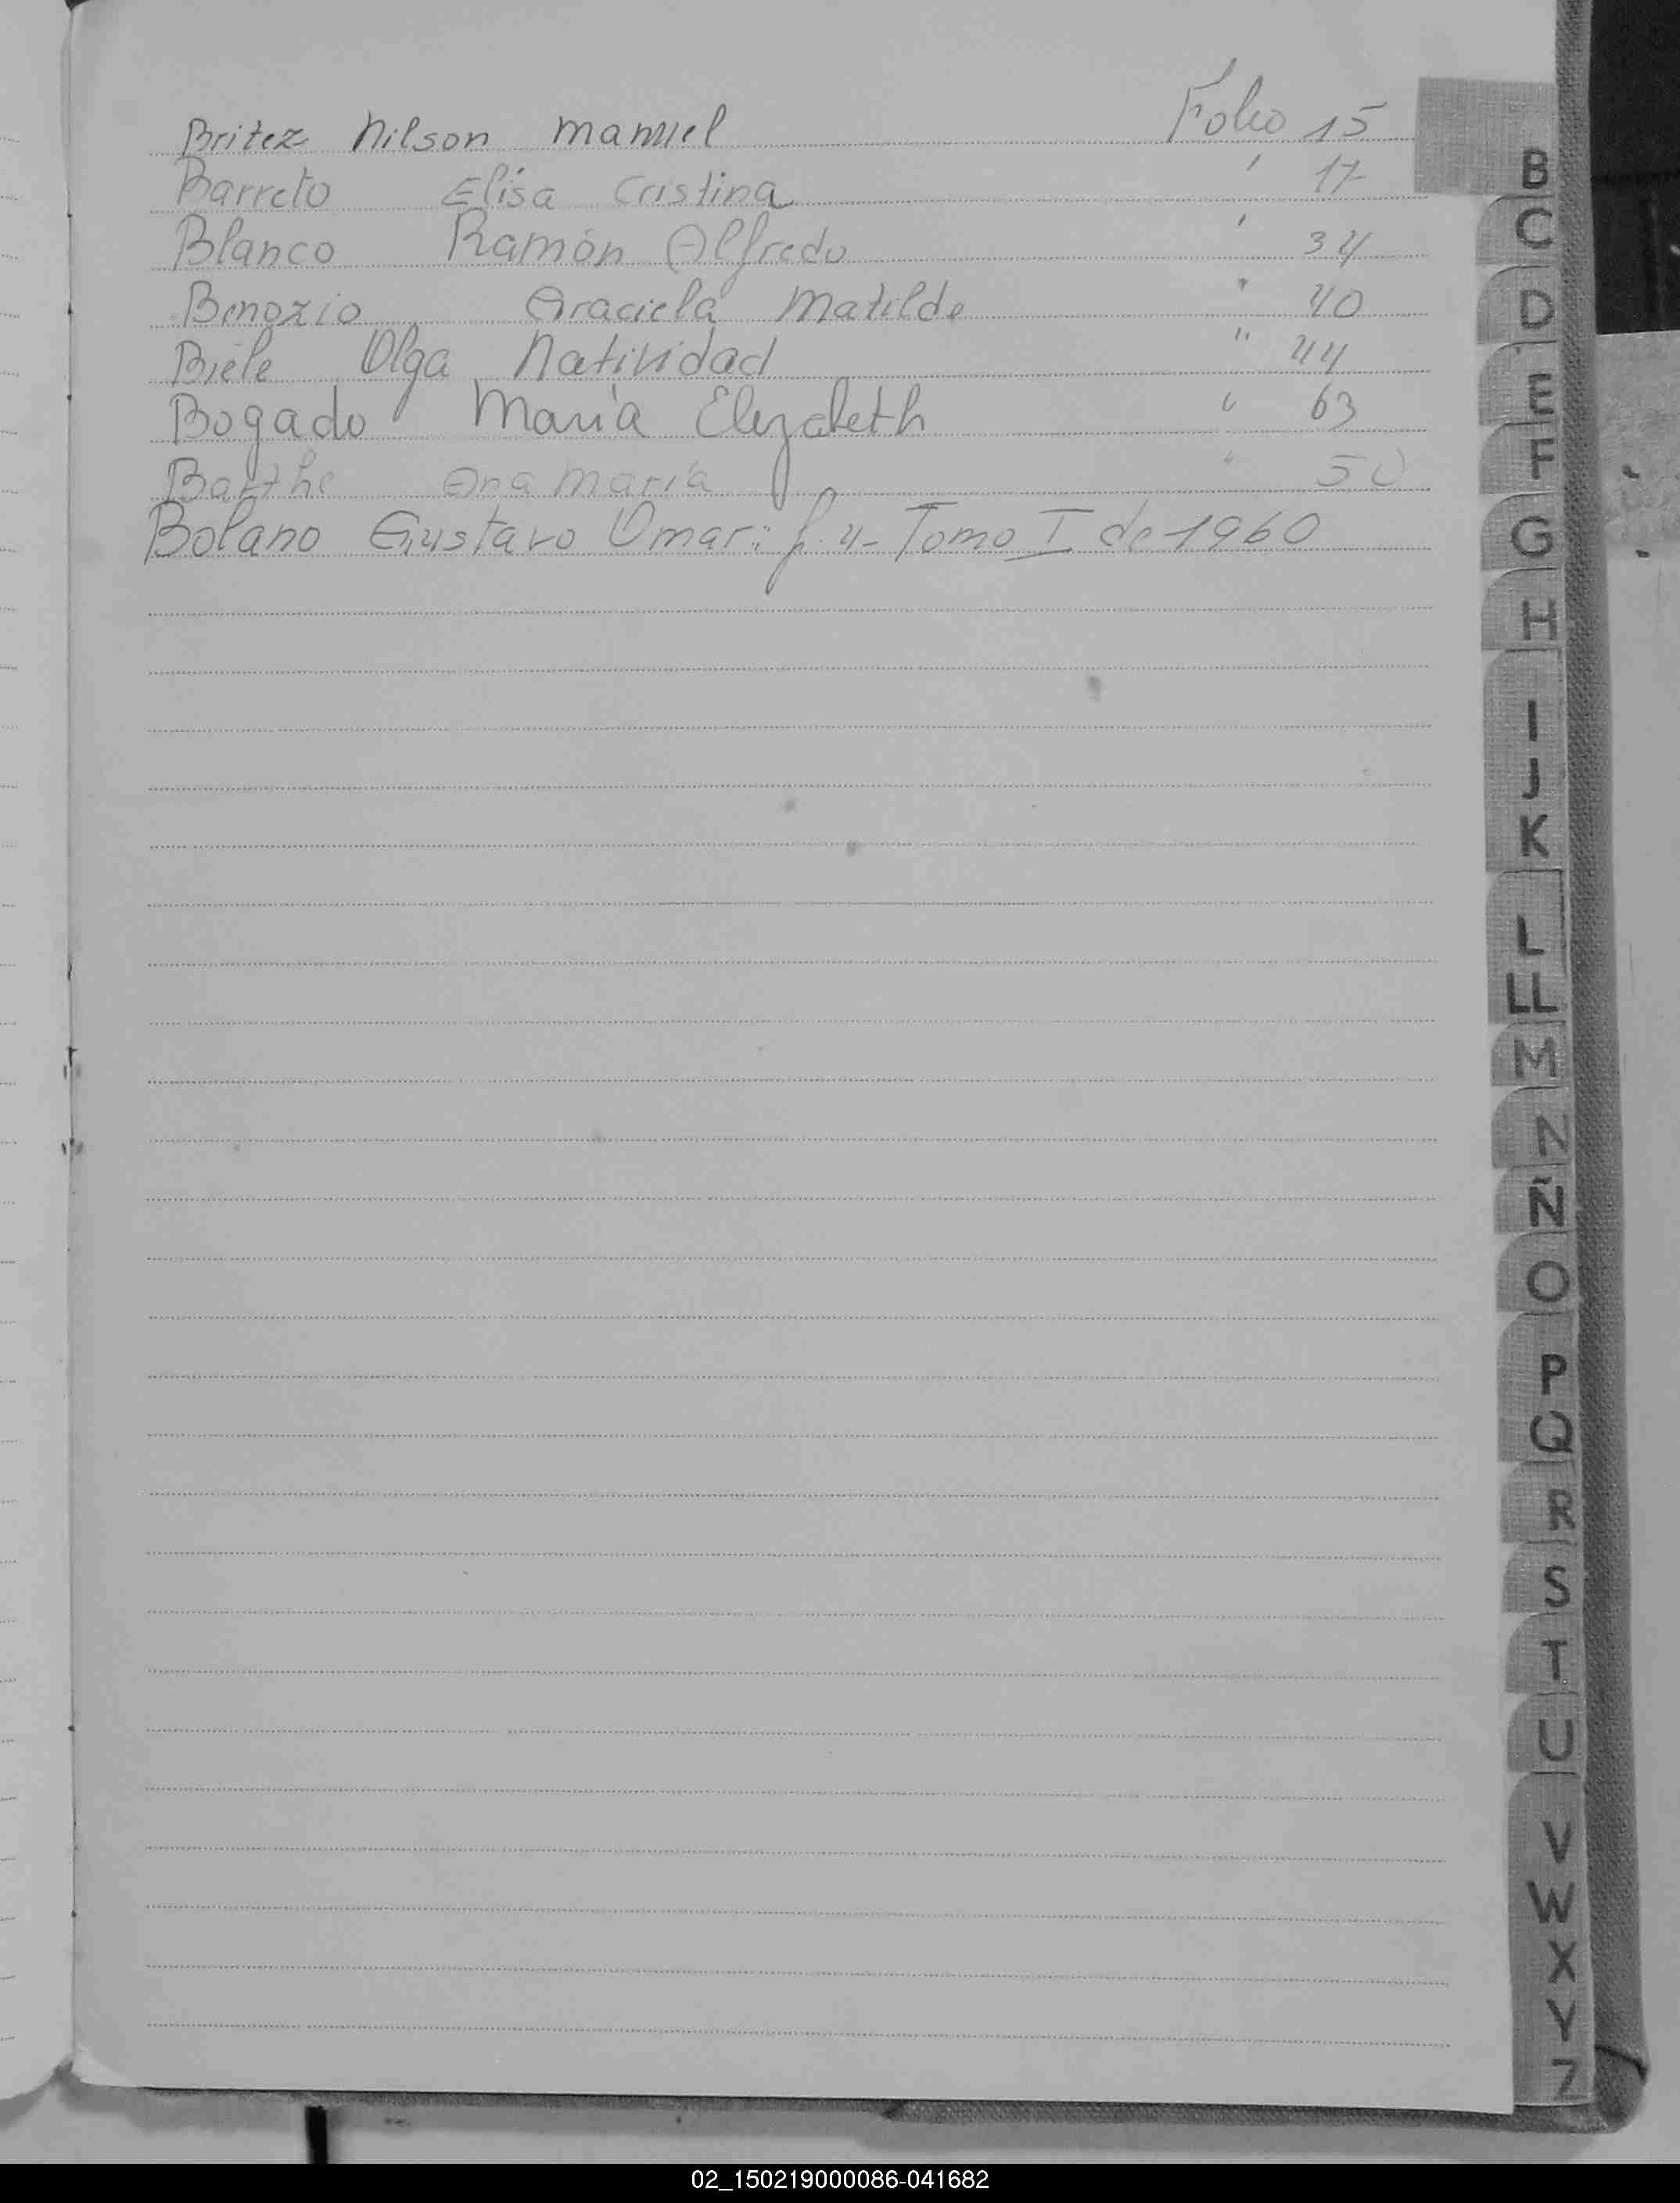 Britez Nilson Manuel Folio 15
Barreto Elisa Cristina " 17
Blanco Ramón Alfredo " 34
Graciela Matilde " 40
Biele Olga Natividad " 44
Bogado María Elizabeth " 63
Barthe Ana María " 50
Bolano Gustavo Omar: f. 4- Tomo I de 1960
B
C
D
E
F
G
H
I
J
K
L
LL
M
N
Ñ
O
P
Q
R
S
T
U
V
W
X
Y
Z
02_150219000086-041682